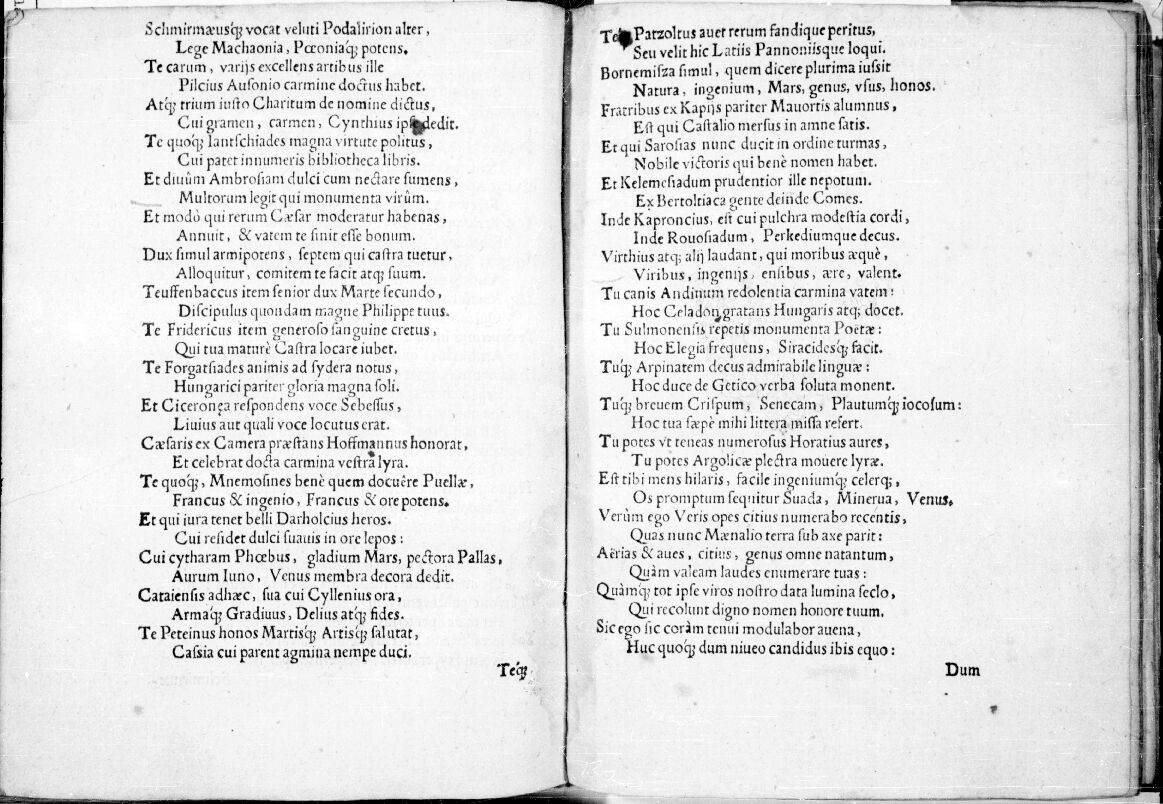 Schmirmæusq́; vocat veluti Podalirion alter,
Lege Machaonia, Pœoniaq́; potens.
Te carum, varijs excellens artibus ille
Pilcius Auſonio carmine doctus habet.
Atq́; trium iuſto Charitum de nomine dictus,
Cui gramen, carmen, Cynthius ipſe dedit.
Te quoq́; Iantſchiades magna virtute politus,
Cui patet innumeris bibliotheca libris.
Et diuûm Ambroſiam dulci cum nectare ſumens,
Multorum legit qui monumenta virûm.
Et modò qui rerum Cæſar moderatur habenas,
Annuit, & vatem te ſinit eſſe bonum.
Dux ſimul armipotens, ſeptem qui caſtra tuetur,
Alloquitur, comitem te facit atq; ſuum.
Teuffenbaccus item ſenior dux Marte ſecundo,
Diſcipulus quondam magne Philippe tuus.
Te Fridericus item generoſo ſanguine cretus,
Qui tua maturè Caſtra locare iubet.
Te Forgatſiades animis ad ſydera notus,
Hungarici pariter gloria magna ſoli.
Et Ciceronęa reſpondens voce Sebeſſus,
Liuius aut quali voce locutus erat.
Cæſaris ex Camera præſtans Hoffmannus honorat,
Et celebrat docta carmina veſtra lyra.
Te quoq́;, Mnemoſines benè quem docuêre Puellæ,
Francus & ingenio, Francus & ore potens.
Et qui iura tenet belli Darholcius heros.
Cui reſidet dulci ſuauis in ore lepos:
Cui cytharam Phœbus, gladium Mars, pectora Pallas,
Aurum Iuno, Venus membra decora dedit.
Cataienſis adhæc, ſua cui Cyllenius ora,
Armaq́; Gradiuus, Delius atq́; fides.
Te Peteinus honos Martisq́; Artisq́; ſalutat,
Caſsia cui parent agmina nempe duci.
Téq́;
Patzoltus auet rerum fandique peritus,
Seu velit hic Latiis Pannoniisque loqui.
Bornemiſza ſimul, quem dicere plurima iuſsit
Natura, ingenium, Mars, genus, vſus, honos.
Fratribus ex Kapijs pariter Mauortis alumnus,
Eſt qui Caſtalio merſus in amne ſatis.
Et qui Saroſias nunc ducit in ordine turmas,
Nobile victoris qui benè nomen habet.
Et Kelemeſiadum prudentior ille nepotum.
Ex Bertoltiaca gente deinde Comes.
Inde Kaproncius, eſt cui pulchra modeſtia cordi,
Inde Rouoſiadum, Perkediumque decus.
Virthius atq; alij laudant, qui moribus æquè,
Viribus, ingenijs, enſibus, ære, valent.
Tu canis Andinum redolentia carmina vatem:
Hoc Celadon gratans Hungaris atq; docet.
Tu Sulmonenſis repetis monumenta Poëtæ:
Hoc Elegia frequens, Siracidesq́; facit.
Tuq́; Arpinatem decus admirabile linguæ:
Hoc duce de Getico verba ſoluta monent.
Tuq́; breuem Criſpum, Senecam, Plautumq́; iocoſum:
Hoc tua ſæpè mihi littera miſſa refert.
Tu potes vt teneas numeroſus Horatius aures,
Tu potes Argolicæ plectra mouere lyræ.
Eſt tibi mens hilaris, facile ingeniumq́; celerq́;,
Os promptum ſequitur Suada, Minerua, Venus.
Verùm ego Veris opes citius numerabo recentis,
Quas nunc Mænalio terra ſub axe parit:
Aërias & aues, citius, genus omne natantum,
Quàm valeam laudes enumerare tuas:
Quàmq́; tot ipſe viros noſtro data lumina ſeclo,
Qui recolunt digno nomen honore tuum.
Sic ego ſic coràm tenui modulabor auena,
Huc quoq́; dum niueo candidus ibis equo:
Dum